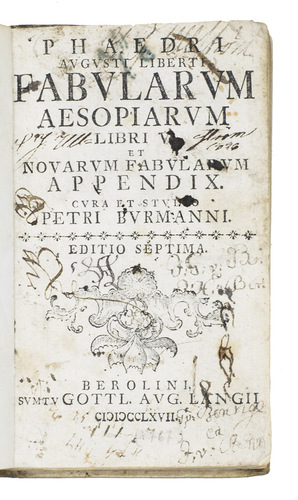 PHAEDRI
AVGVSTI LIBERTI
FABVLARVM
AESOPIARVM
LIBRI V.
ET
NOVARVM FABVLARVM
APPENDIX.
CVRA ET STVDIO
PETRI BVRMANNI.
EDITIO SEPTIMA.
BEROLINI,
SVMTV GOTTL. AVG. LANGII
CIↃIↃCCLXVII.
1767